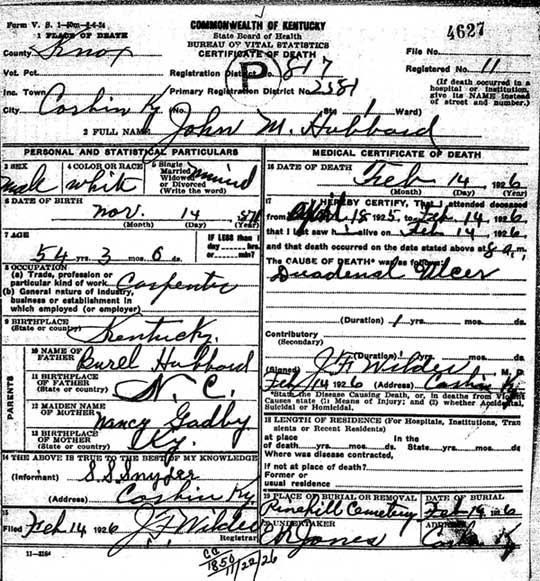 Form V. S. 1-50m-8-4-24
COMMONWEALTH OF KENTUCKY
State Board of Health
BUREAU OF VITAL STATISTICS
CERTIFICATE OF DEATH
4627
1 PLACE OF DEATH
County Knox
File No.
Vot. Pct.
Registration District No. 817
Registered No. 11
P
Inc. Town
Primary Registration District No. 2381
(If death occurred in a hospital or institution, give its NAME instead of street and number.)
City Corbin Ky (No. St. Ward)
2 FULL NAME John M. Hubbard
PERSONAL AND STATISTICAL PARTICULARS
3 SEX male
4 COLOR OR RACE white
5 Single Married Widowed or Divorced (Write the word) married
6 DATE OF BIRTH
Nov. 14
(Month) (Day) (Year)
7 AGE
IF LESS than 1 day hrs. or min?
54 yrs. 3 mos. 0 ds.
8 OCCUPATION
(a) Trade, profession or particular kind of work Carpenter
(b) General nature of industry, business or establishment in which employed (or employer)
9 BIRTHPLACE
(State or country) Kentucky.
PARENTS
10 NAME OF FATHER Burel Hubbard
11 BIRTHPLACE OF FATHER (State or country) N. C.
12 MAIDEN NAME OF MOTHER Nancy Gadby
13 BIRTHPLACE OF MOTHER (State or country) Ky.
14 THE ABOVE IS TRUE TO THE BEST OF MY KNOWLEDGE
(Informant) S. S. Snyder
(Address) Corbin Ky.
15
Filed Feb 14 1926 J. F. Wilder
Registrar
11-3184
MEDICAL CERTIFICATE OF DEATH
16 DATE OF DEATH
Feb 14 1926
(Month) (Day) (Year)
17 I HEREBY CERTIFY, That I attended deceased
from April 18 1925, to Feb 14, 1926,
that I last saw h alive on Feb 14, 1926,
and that death occurred on the date stated above at 8 a.m.
The CAUSE OF DEATH* was as follows:
Duadenal Ulcer
(Duration) 1 yrs. mos. ds.
Contributory
(Secondary)
(Duration) yrs. mos. ds.
(Signed) J F Wilder M. D.
Feb 14 1926 (Address) Corbin Ky.
*State the Disease Causing Death, or, in deaths from Violent Causes state (1) Means of Injury; and (2) whether Accidental, Suicidal or Homicidal.
18 LENGTH OF RESIDENCE (For Hospitals, Institutions, Transients or Recent Residents)
at place of death yrs. mos. ds. In the State yrs. mos. ds.
Where was disease contracted,
If not at place of death?
Former or usual residence
19 PLACE OF BURIAL OR REMOVAL Pinehill Cemetery
DATE OF BURIAL Feb 1926
20 UNDERTAKER Jones
ADDRESS Corbin Ky
CC
1850
11/22/26